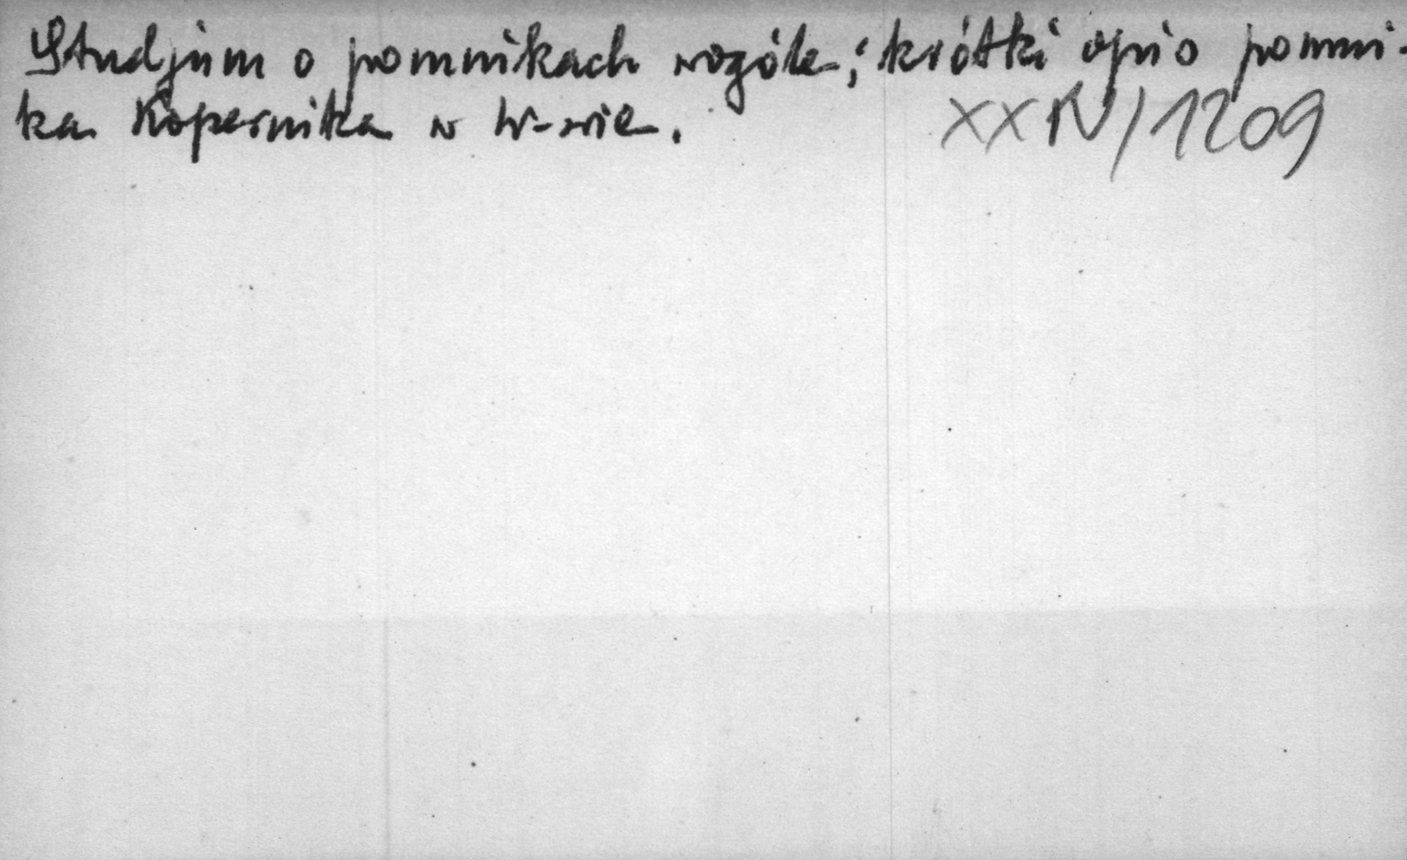 Studjum o pomnikach wogóle; krótki opis pomni-
ka Kopernika w W-wie.
XXIV/1209